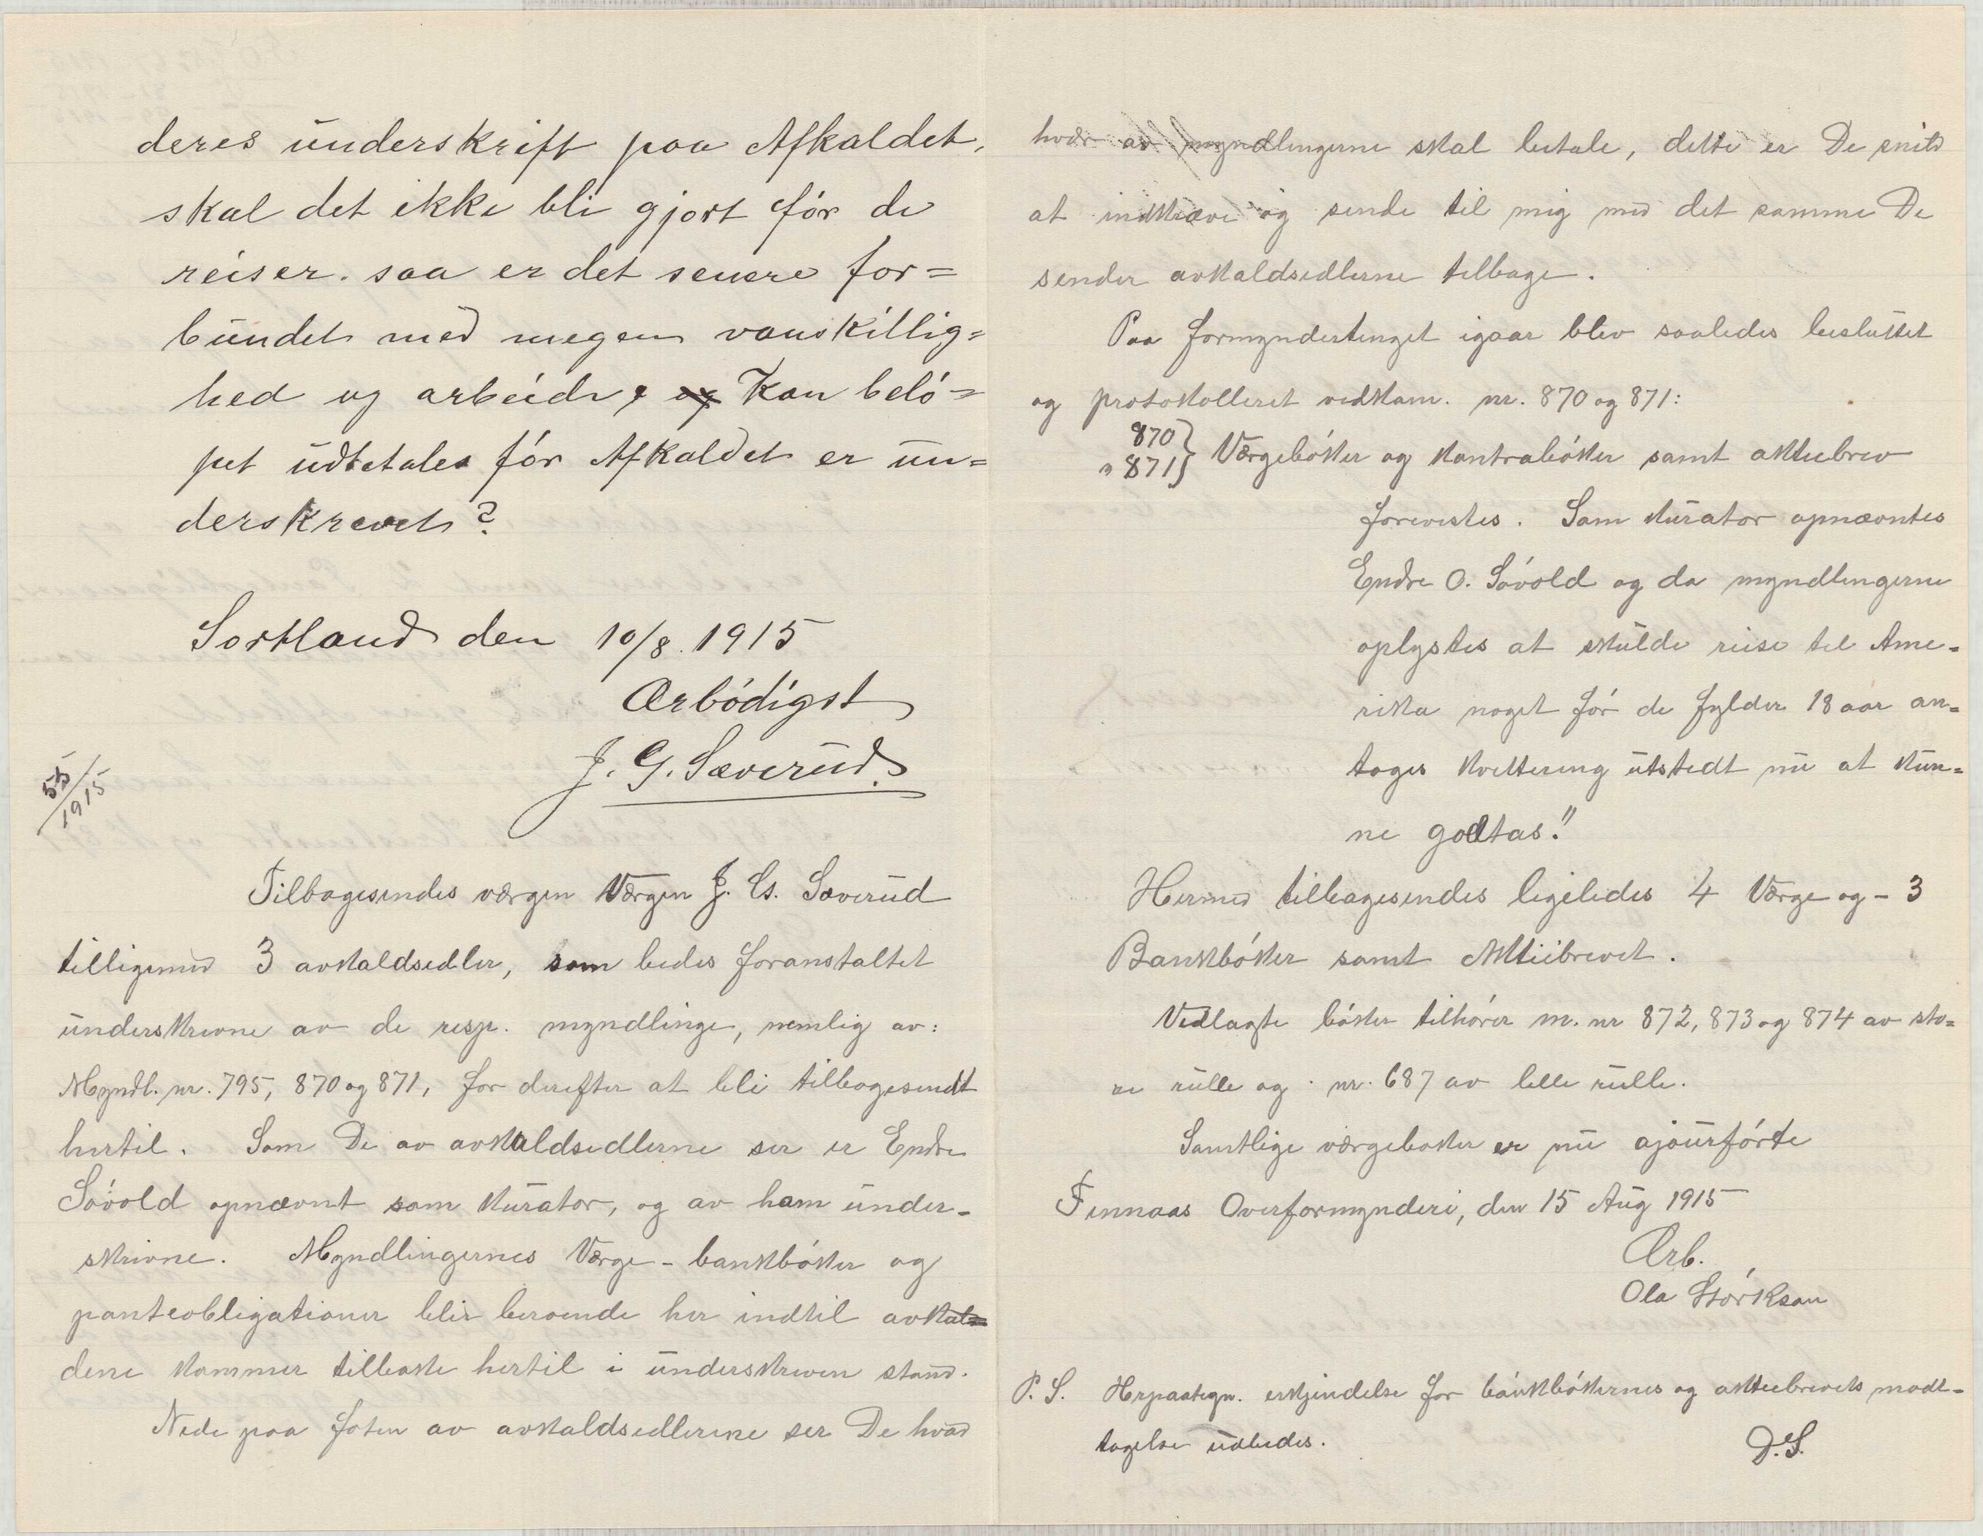 deres underskrift paa Afkaldet,
skal det ikke bli gjort før de
reiser. saa er det senere for=
bundet med megen vanskillig=
hed og arbeide, og Kan belö=
pet udbetales för Afkaldet er un=
derskrevet?
Sortland den 10/8. 1915
Ærbödigst
J. G. Sæverud
55/1915
Tilbagesendes værgen Værgen J. G. Sæverud
tilligemed 3 avkaldsedler, som bedes foranstaltet
underskrevne av de resp. myndlinge, nemlig av:
Myndl. nr. 795, 870 og 871, for derefter at bli tilbagesendt
hertil. Som De av avkaldsedlerne ser er Endre
Sövold opnævnt som kurator, og av ham under-
skrivne. Myndlingernes Værge- bankböker og
panteobligationer blir beroende her indtil avkal=
dene kommer tilbake hertil i underskreven stand.
Nede paa foten av avkaldsedlerne ser De hvad
hvær av myndlingerne skal betale, dette er De snild
at indkræve og sende til mig med det samme De
sender avkaldsedlerne tilbage.
Paa formyndertinget igaar blev saaledes besluttet
og protokolleret vedkom. nr. 870 og 871:
870
" 871} Værgeböker og kontraböker samt aktiebrev
forevistes. Som kurator opnævntes
Endre O. Sövold og da myndlingerne
oplystes at skulde reise til Ame-
rika noget för de fylder 18 aar an-
toges kvittering utstedt nu at kun-
ne godtas!"
Hermed tilbagesendes ligeledes 4 Værge og - 3
Bankböker samt Aktiebrevet.
Vedlagte böker tilhörer m. nr 872, 873 og 874 av sto-
re rulle og nr. 687 av lille rulle.
Samtlige værgeboker er nu ajourförte
Finnaas Overformynderi, den 15 Aug 1915
Ærb.
Ola Störkson
P. S. Herpaategn. erkjendelse for bankbökernes og aktiebrevets modt-
tagelse udbedes.
D.S.